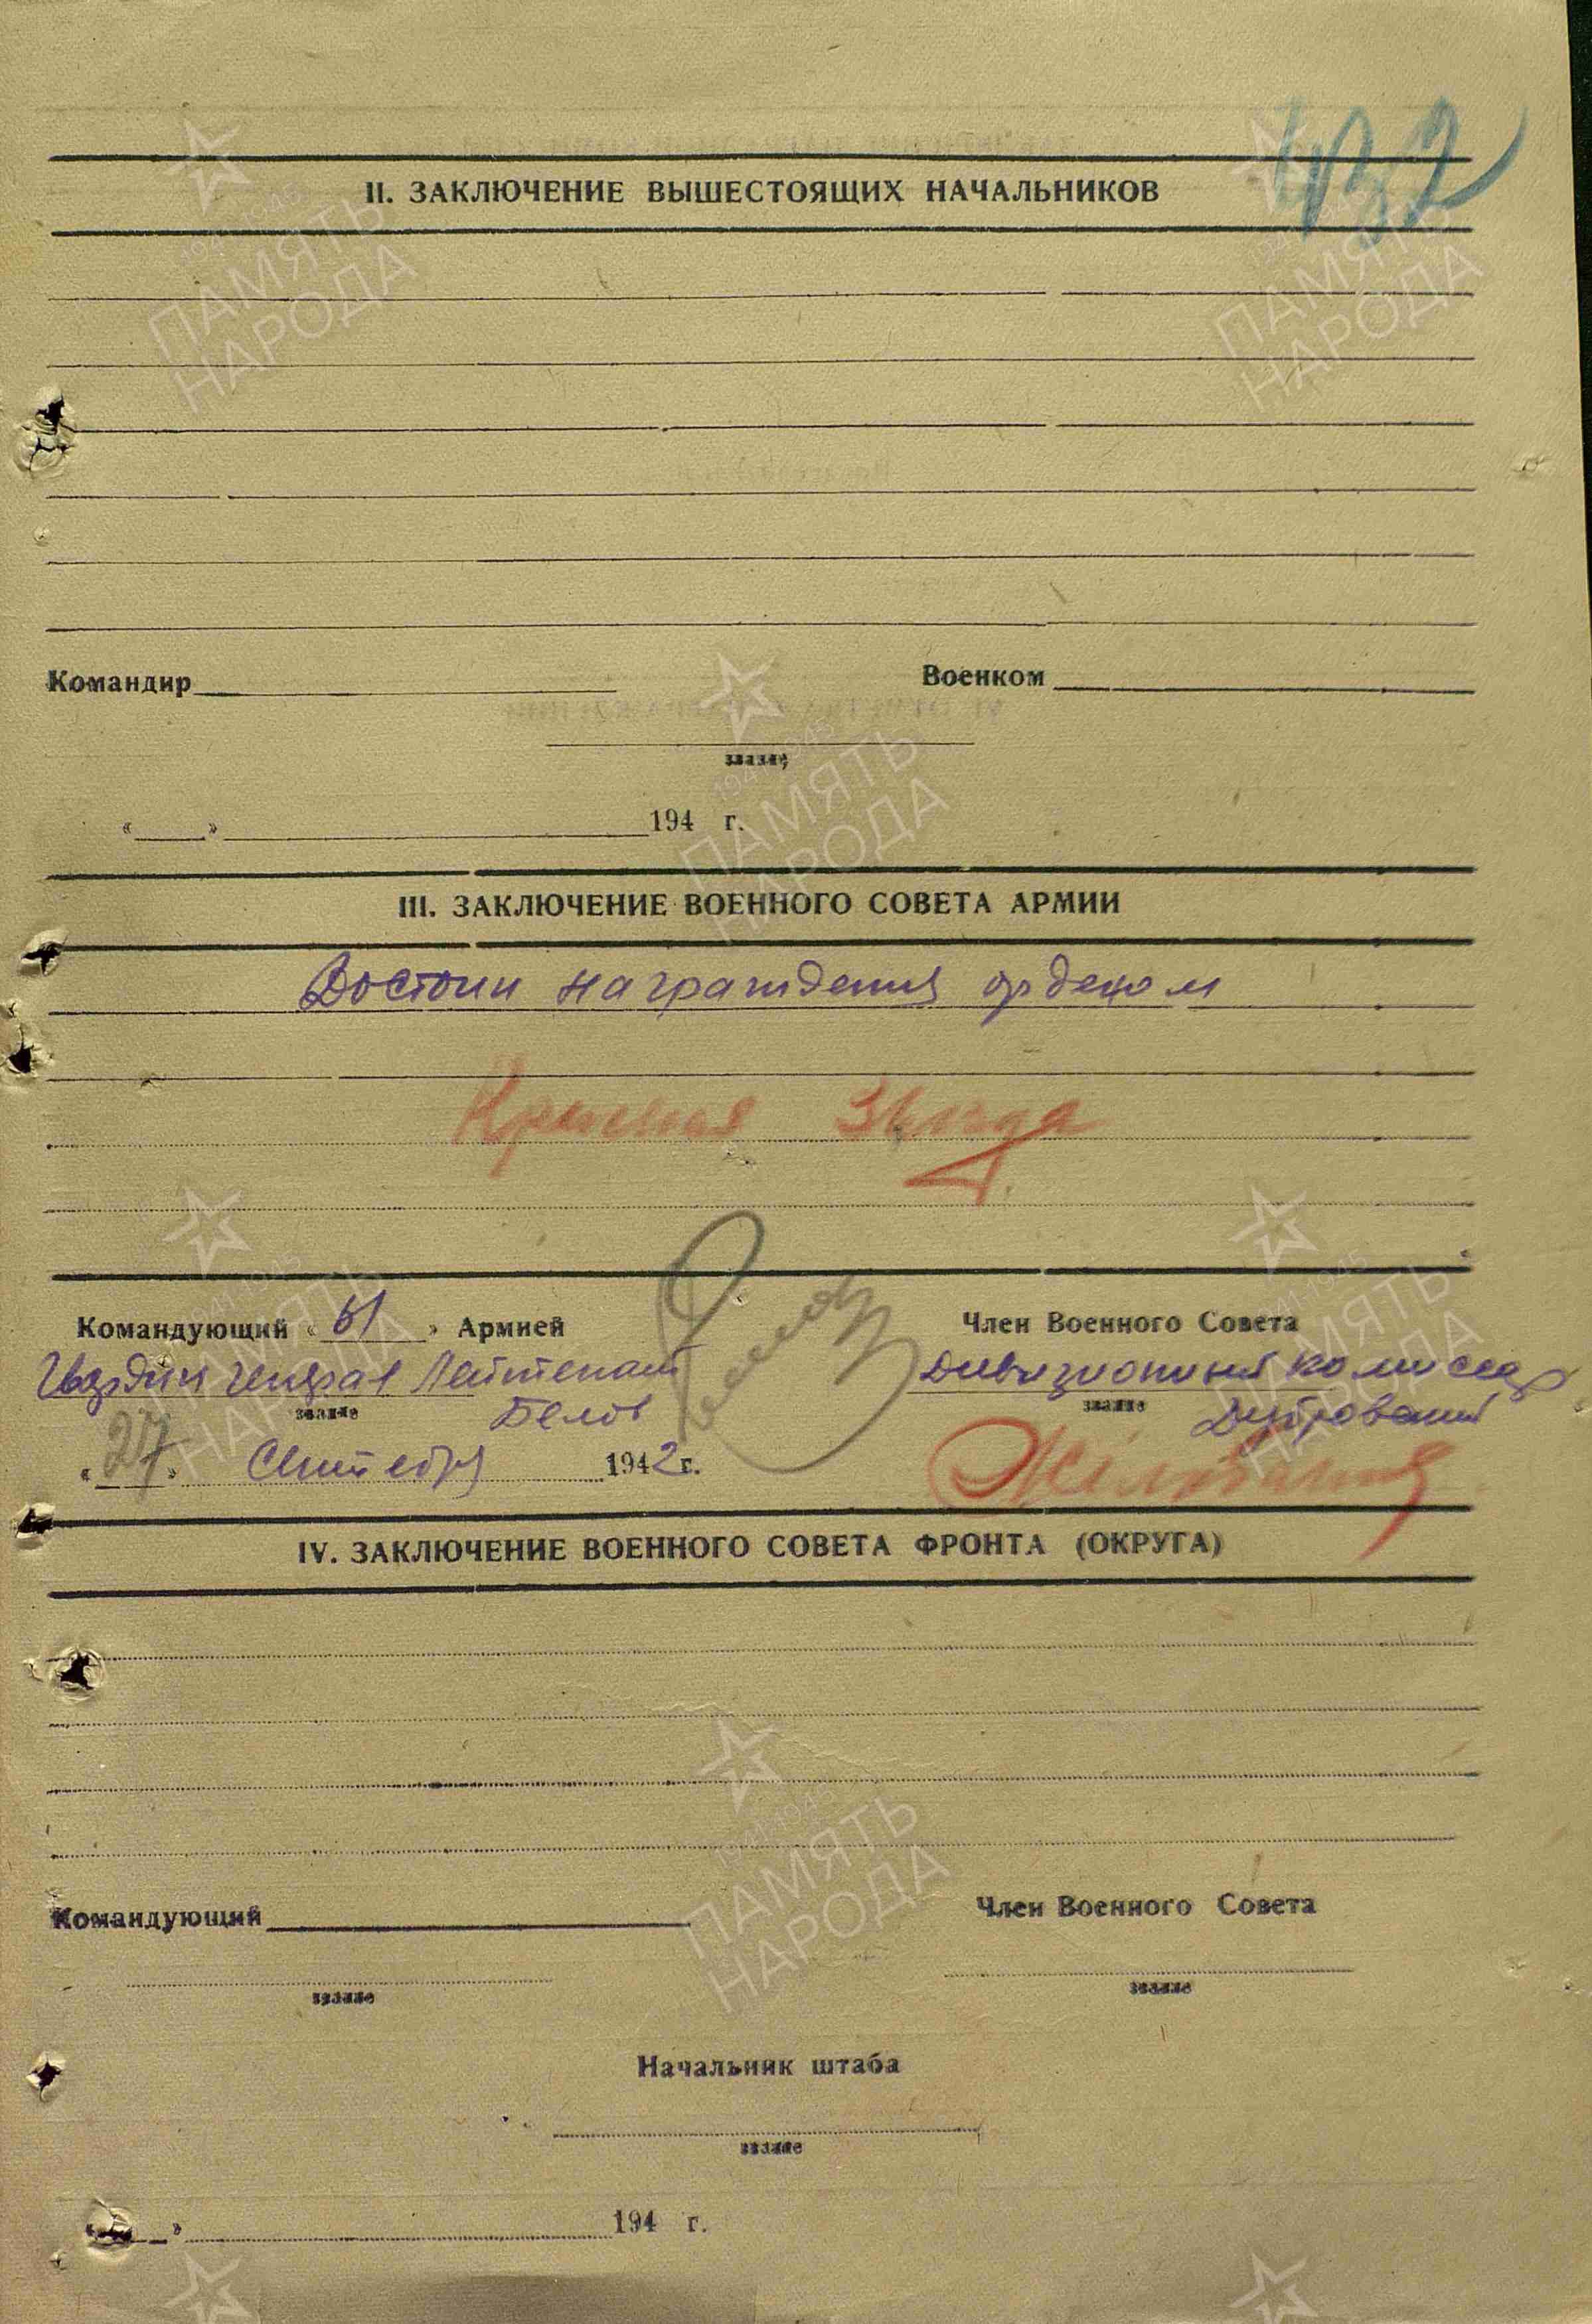 432
II. ЗАКЛЮЧЕНИЕ ВЫШЕСТОЯЩИХ НАЧАЛЬНИКОВ
Командир Военком
звание
« » 194 г.
III. ЗАКЛЮЧЕНИЕ ВОЕННОГО СОВЕТА АРМИИ
Достоин награждения орденом
Красная Звезда
Командующий « 61 » Армией Член Военного Совета
Гвардии генерал Лейтенант Дивизионный комиссар
звание Белов звание Дубровский
« 27 » Сентября 1942 г.
IV. ЗАКЛЮЧЕНИЕ ВОЕННОГО СОВЕТА ФРОНТА (ОКРУГА)
Командующий Член Военного Совета
звание звание
Начальник штаба
звание
« » 194 г.
ПАМЯТЬ НАРОДА
1941-1945